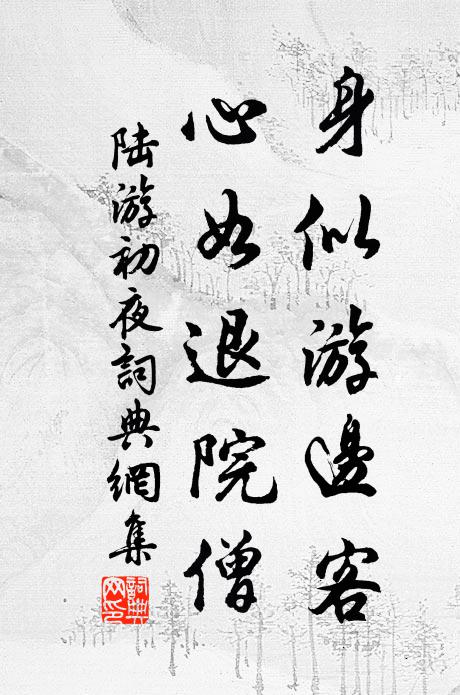 身似游邊客
心如退院僧
陆游初夜詞典網集
詞典